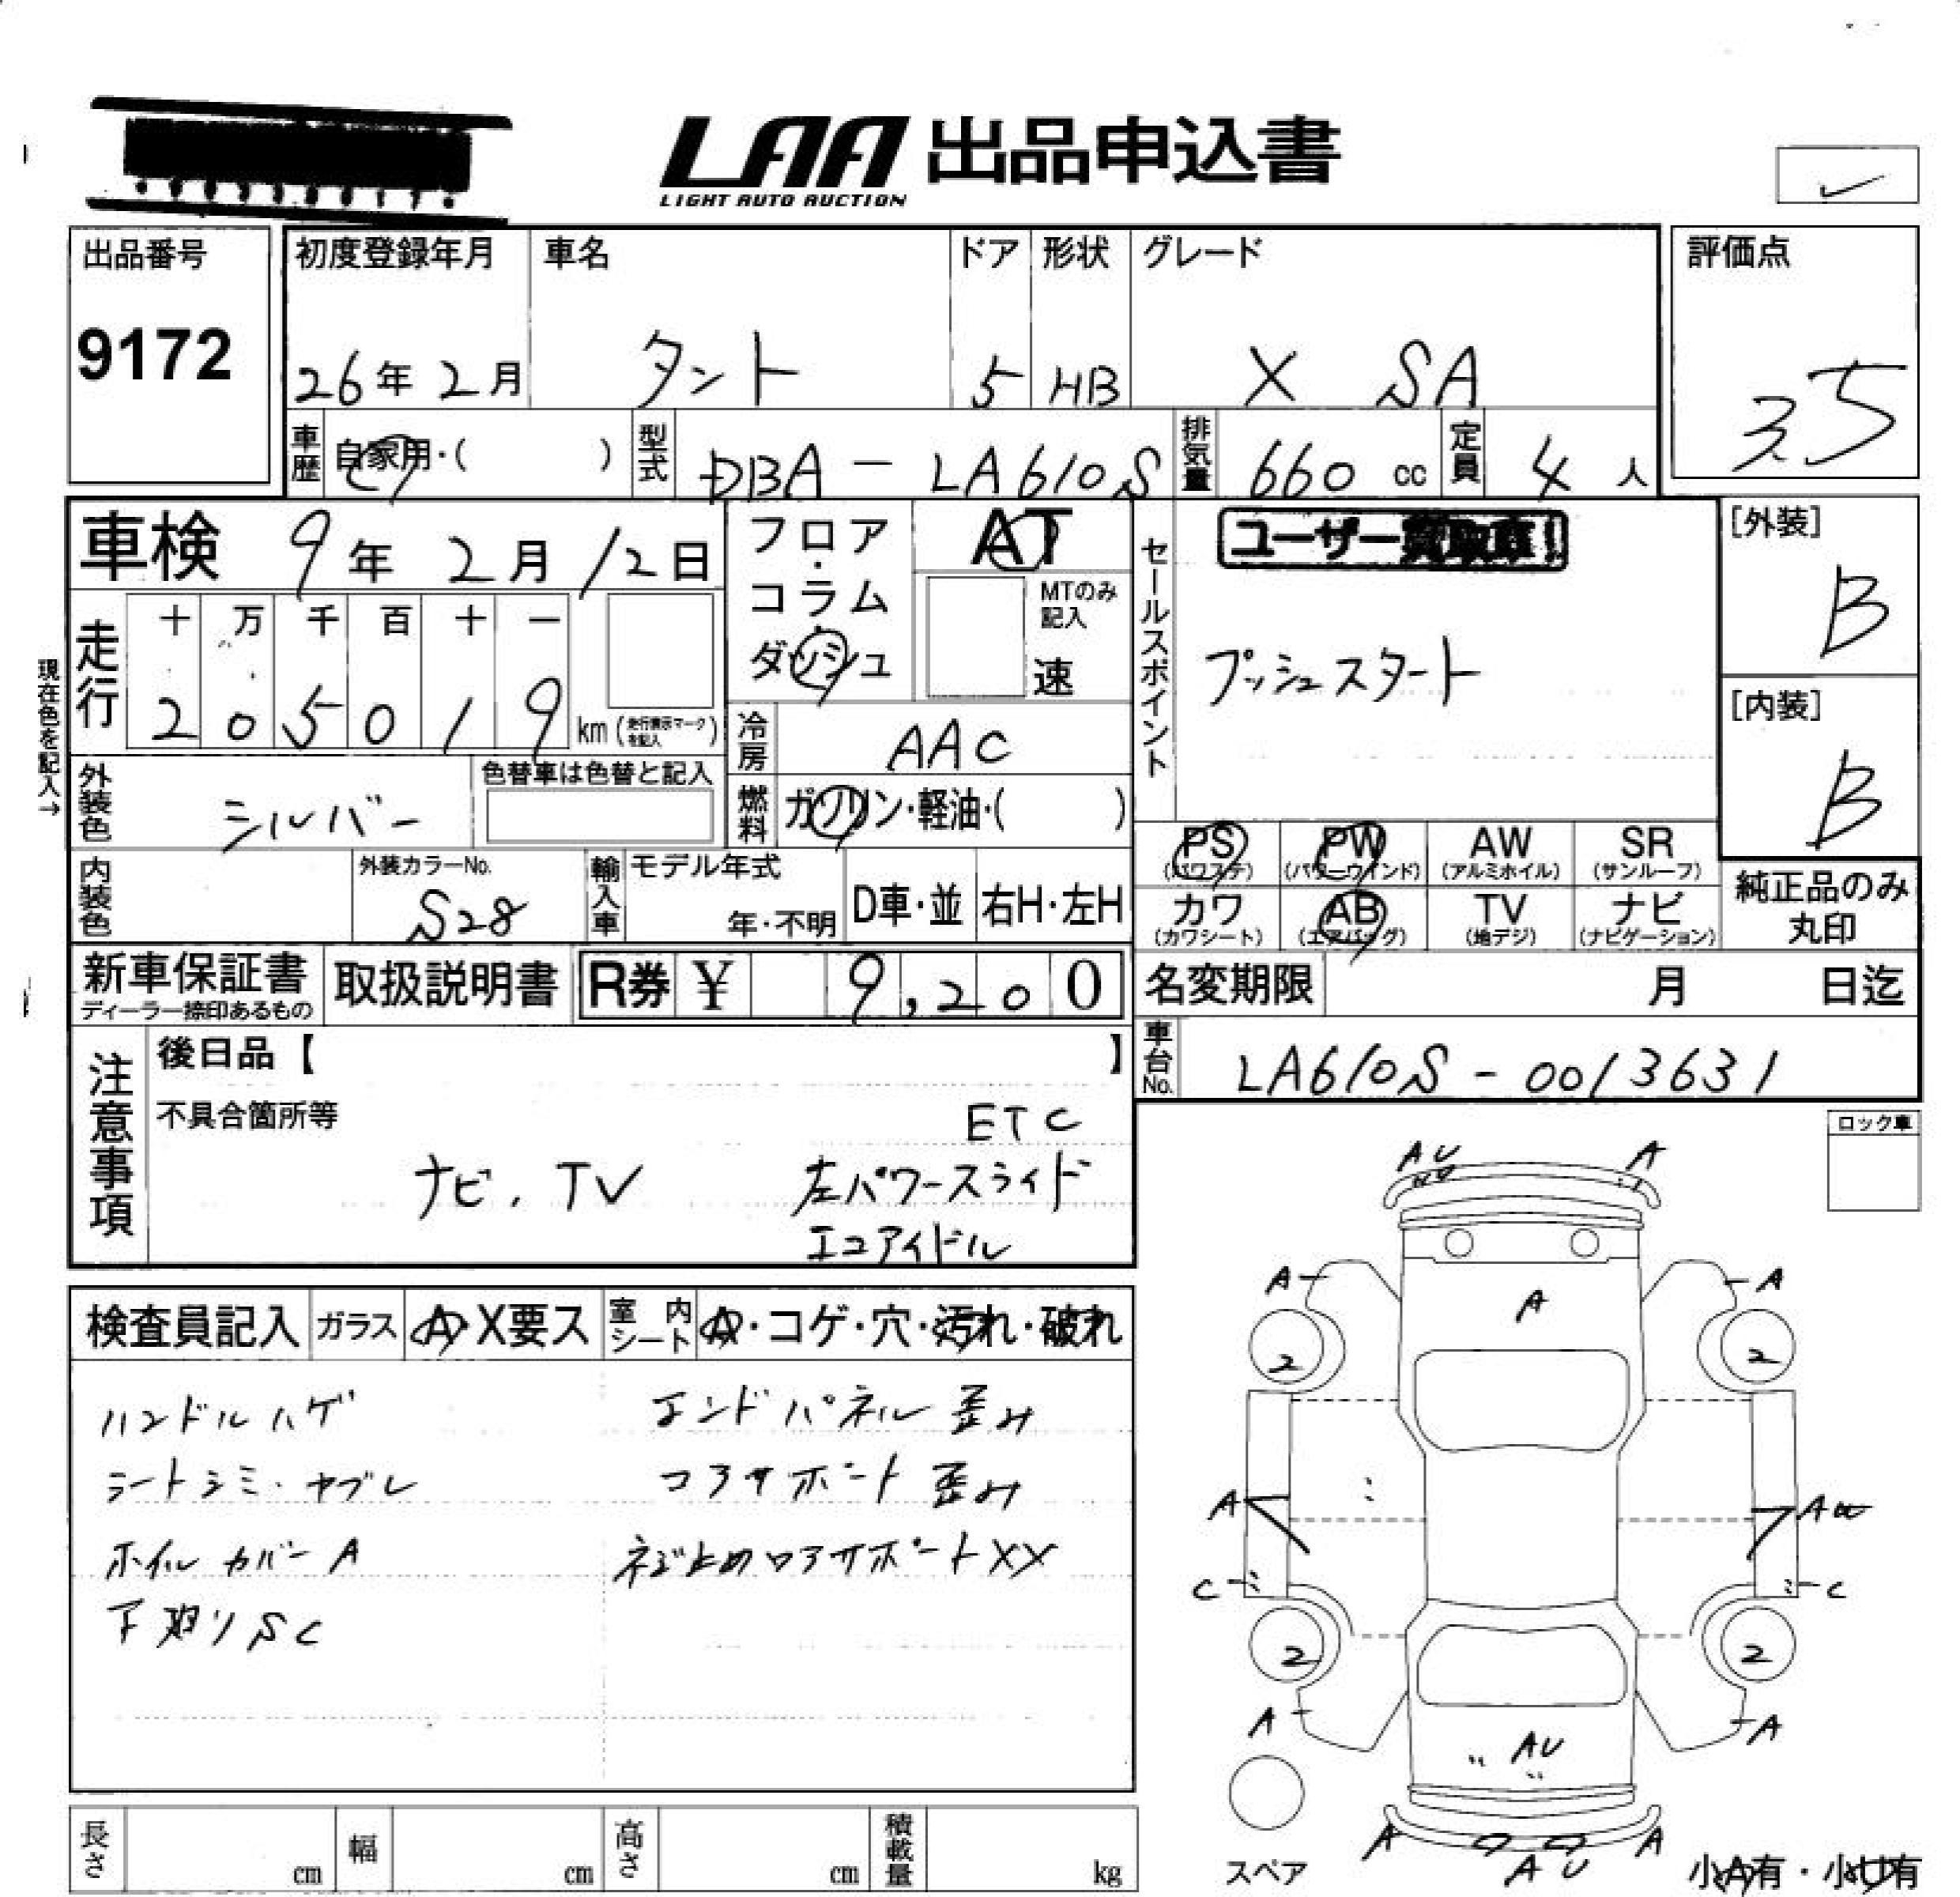 LAA 出品申込書
LIGHT AUTO AUCTION
出品番号
9172
初度登録年月
26年 2月
車名
タント
ドア
5
形状
HB
グレード
X SA
評価点
3.5
車歴
自家用・( )
型式
DBA - LA610S
排気量
660 cc
定員
4 人
車検 9年 2月 12日
フロア・コラム・ダッシュ
AT
MTのみ記入
速
セールスポイント
ユーザー買取車!
プッシュスタート
[外装]
B
[内装]
B
現在色を記入→
走行
十 万 千 百 十 一
2 0 5 0 1 9 km (走行表示マークを記入)
冷房
AAC
外装色
シルバー
色替車は色替と記入
燃料
ガソリン・軽油・( )
PS (パワステ)
PW (パワーウインド)
AW (アルミホイル)
SR (サンルーフ)
カワ (カワシート)
AB (エアバッグ)
TV (地デジ)
ナビ (ナビゲーション)
純正品のみ丸印
内装色
外装カラーNo.
S28
輸入車
モデル年式
年・不明
D車・並
右H・左H
新車保証書
ディーラー捺印あるもの
取扱説明書
R券 ¥ 9,200
名変期限 月 日迄
車台No.
LA610S - 0013631
注意事項
後日品【 】
不具合箇所等
ETC
ナビ、TV 左パワースライド
エコアイドル
ロック車
検査員記入
ガラス
A・X要ス
室内シート
A・コゲ・穴・汚れ・破れ
ハンドルハゲ
エンドパネル歪み
シートシミ・ヤブレ
コアサポート歪み
ホイルカバーA
ネジ止めロアサポートXX
下廻りSC
AU A
A A
A
2 2
A
C C
2 2
A A
AU
A A
AU
スペア
小A有・小U有
長さ cm
幅 cm
高さ cm
積載量 kg